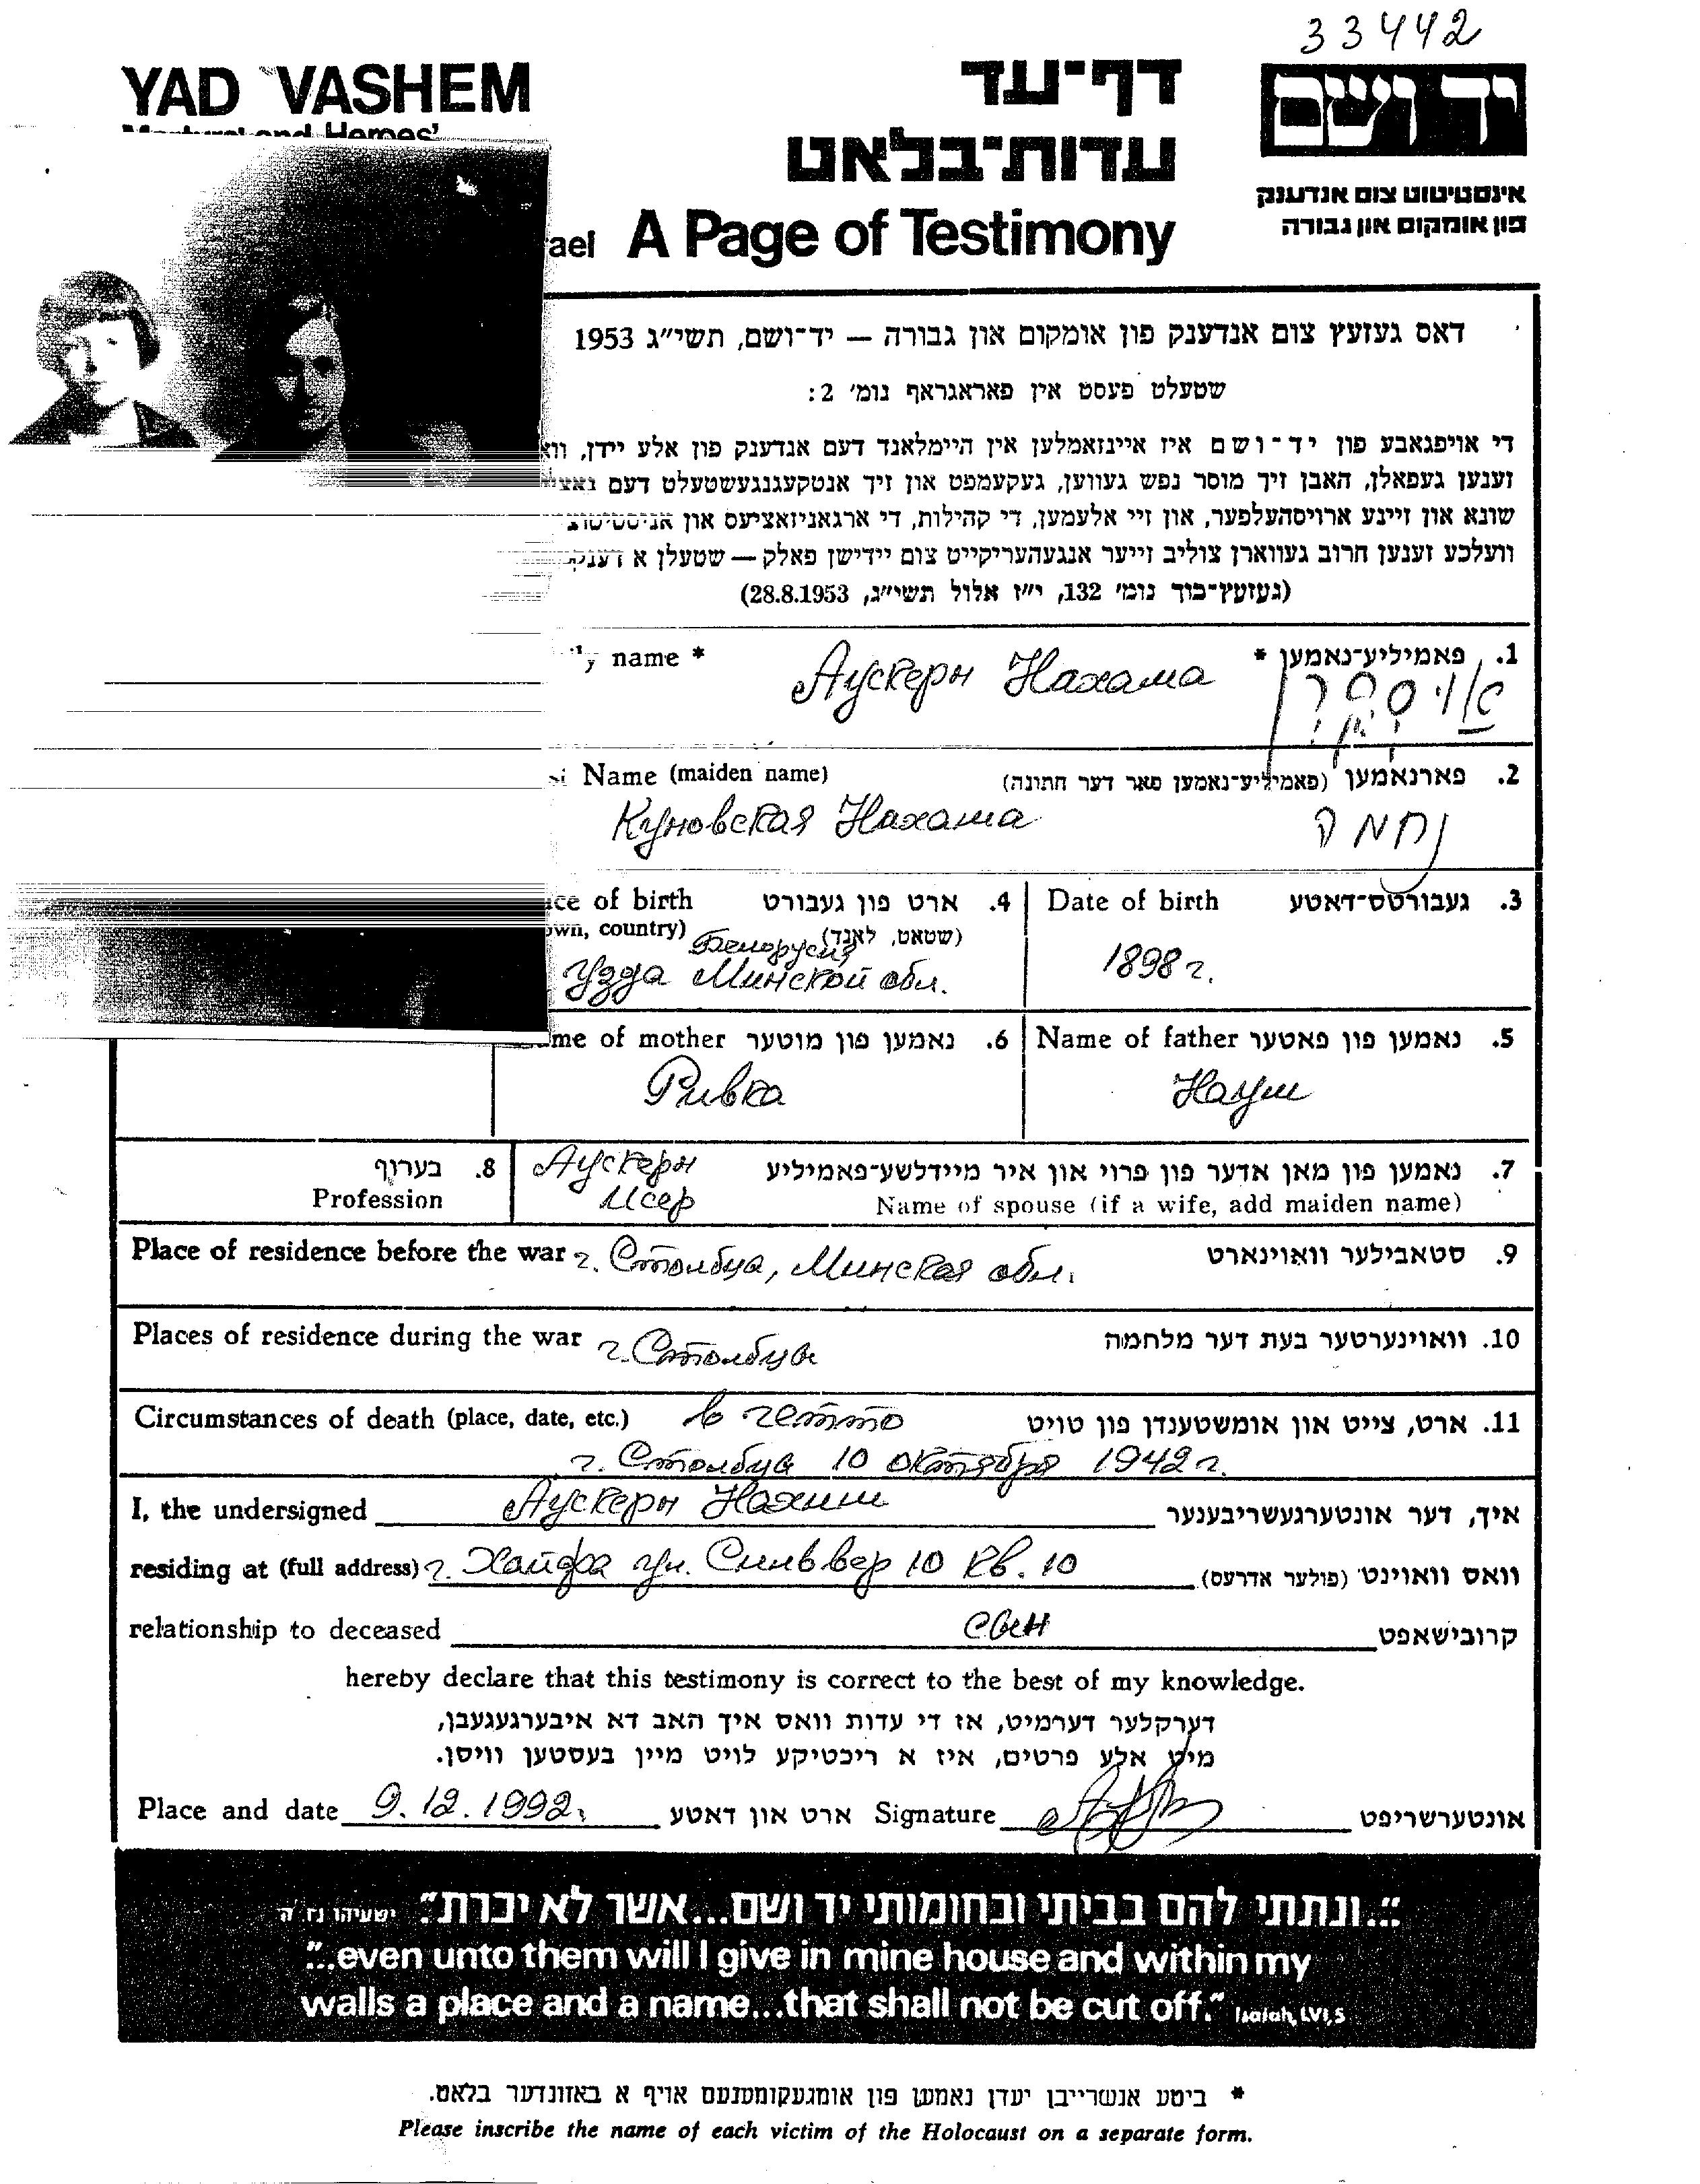 33442
YAD VASHEM
Martyrs' and Heroes'
ael
דף־עד
עדות־בלאט
A Page of Testimony
יד ושם
אינסטיטוט צום אנדענק
פון אומקום און גבורה
דאס געזעץ צום אנדענק פון אומקום און גבורה — יד־ושם, תשי״ג 1953
שטעלט פעסט אין פאראגראף נומ׳ 2:
די אויפגאבע פון יד־ושם איז איינזאמלען אין היימלאנד דעם אנדענק פון אלע יידן, ווא
זענען געפאלן, האבן זיך מוסר נפש געווען, געקעמפט און זיך אנטקעגנגעשטעלט דעם נאצי
שונא און זיינע ארויסהעלפער, און זיי אלעמען, די קהילות, די ארגאניזאציעס און אניסטיטוצ
וועלכע זענען חרוב געווארן צוליב זייער אנגעהעריקייט צום יידישן פאלק — שטעלן א דענק
(געזעץ־בוך נומ׳ 132, י״ז אלול תשי״ג, 28.8.1953)
ily name * Аускерн Нахама 1. פאמיליע־נאמען *
Name (maiden name) 2. פארנאמען (פאמיליע־נאמען פאר דער חתונה)
Куновская Нахама נחמה
ce of birth 4. ארט פון געבורט Date of birth 3. געבורטס־דאטע
own, country) (שטאט, לאנד)
Белорусия
Узда Минской обл. 1898 г.
me of mother 6. נאמען פון מוטער Name of father 5. נאמען פון פאטער
Ривка Наум
8. בערוף Аускерн 7. נאמען פון מאן אדער פון פרוי און איר מיידלשע־פאמיליע
Profession Исер Name of spouse (if a wife, add maiden name)
Place of residence before the war г. Столбца, Минская обл. 9. סטאבילער וואוינארט
Places of residence during the war г. Столбцы 10. וואוינערטער בעת דער מלחמה
Circumstances of death (place, date, etc.) в гетто 11. ארט, צייט און אומשטענדן פון טויט
г. Столбца 10 октября 1942 г.
I, the undersigned Аускерн Нахим איך, דער אונטערגעשריבענער
residing at (full address) г. Хайфа ул. Сильвер 10 кв. 10 וואס וואוינט (פולער אדרעס)
relationship to deceased свен קרובישאפט
hereby declare that this testimony is correct to the best of my knowledge.
דערקלער דערמיט, אז די עדות וואס איך האב דא איבערגעגעבן,
מיט אלע פרטים, איז א ריכטיקע לויט מיין בעסטען וויסן.
Place and date 9.12.1992г ארט און דאטע Signature אונטערשריפט
"...ונתתי להם בביתי ובחומותי יד ושם...אשר לא יכרת" ישעיהו נו ה
"...even unto them will I give in mine house and within my
walls a place and a name...that shall not be cut off." Isaiah, LVI,5
* ביטע אנשרייבן יעדן נאמען פון אומגעקומענעם אויף א באזונדער בלאט.
Please inscribe the name of each victim of the Holocaust on a separate form.